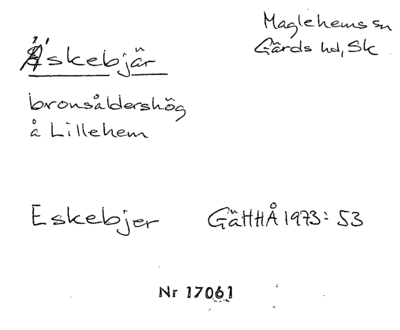 Äskebjär
Maglehems sn
Gärds hd, Sk
bronsåldershög
å Lillehem
Eskebjer GäHHÅ 1973: 53
Nr 17061